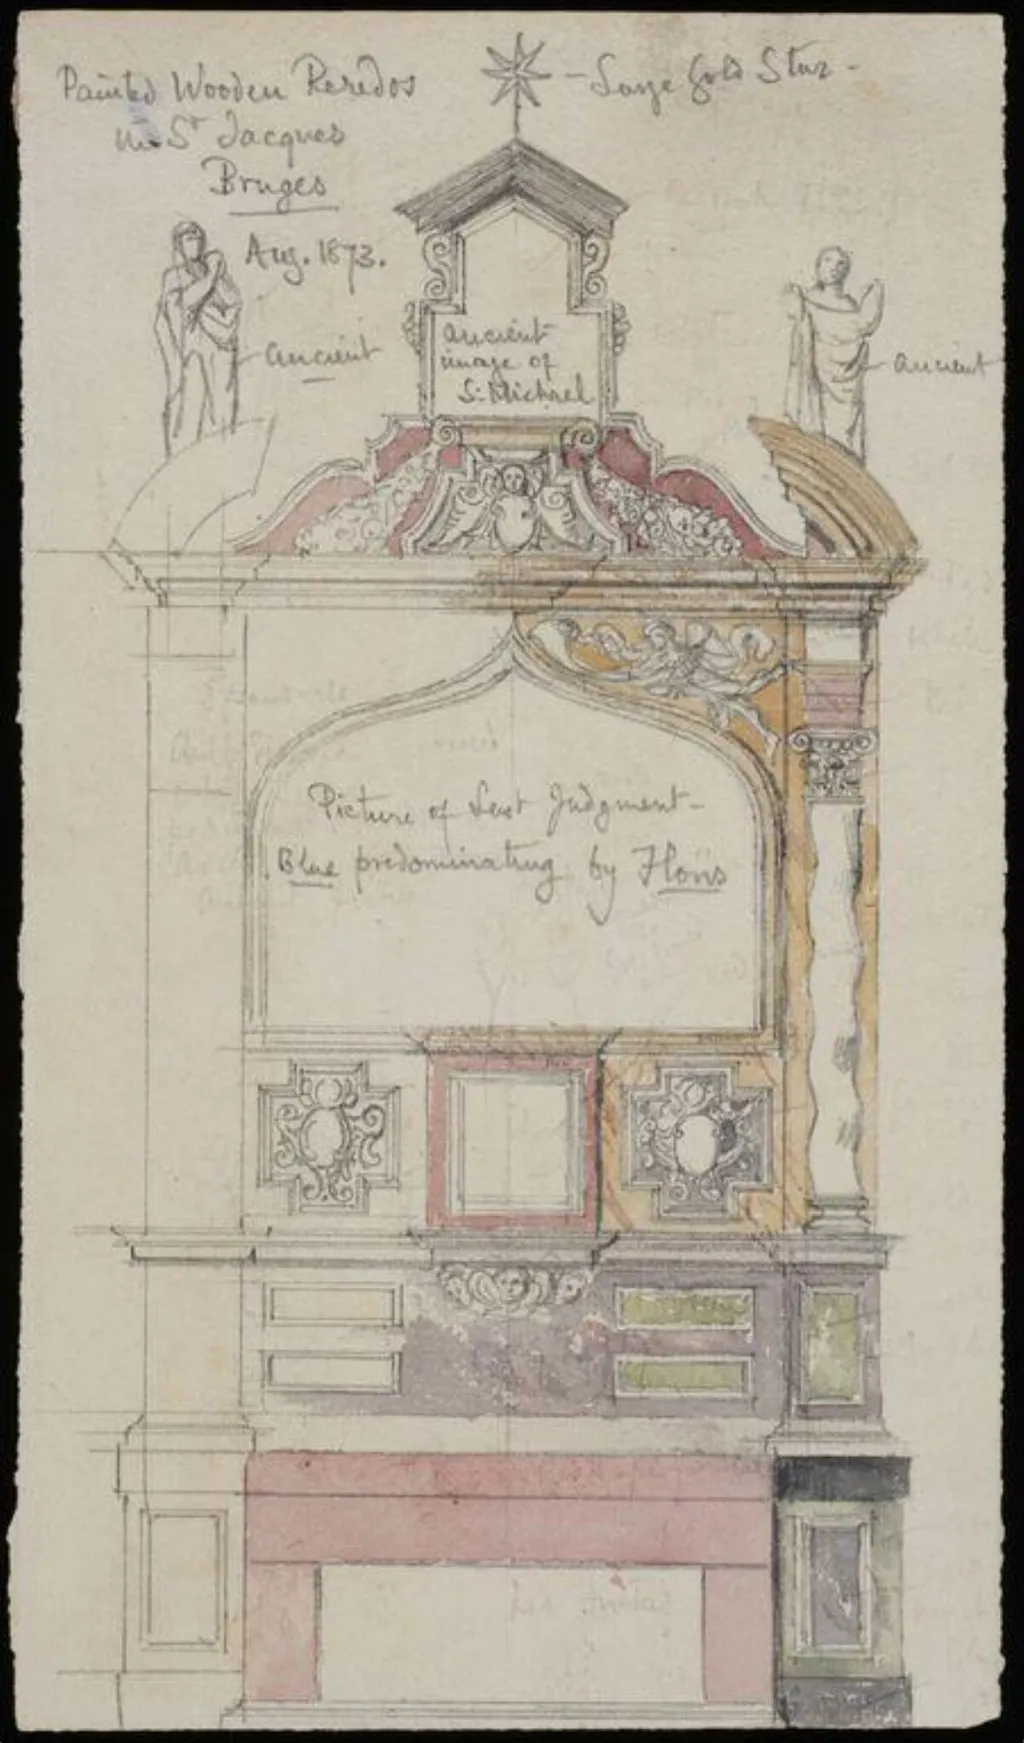 Painted Wooden Reredos
in St Jacques
Bruges
Aug. 1873.
Large Gold Star -
ancient
ancient
ancient
image of
St. Michael
Picture of Last Judgment -
Blue predominating by Floris